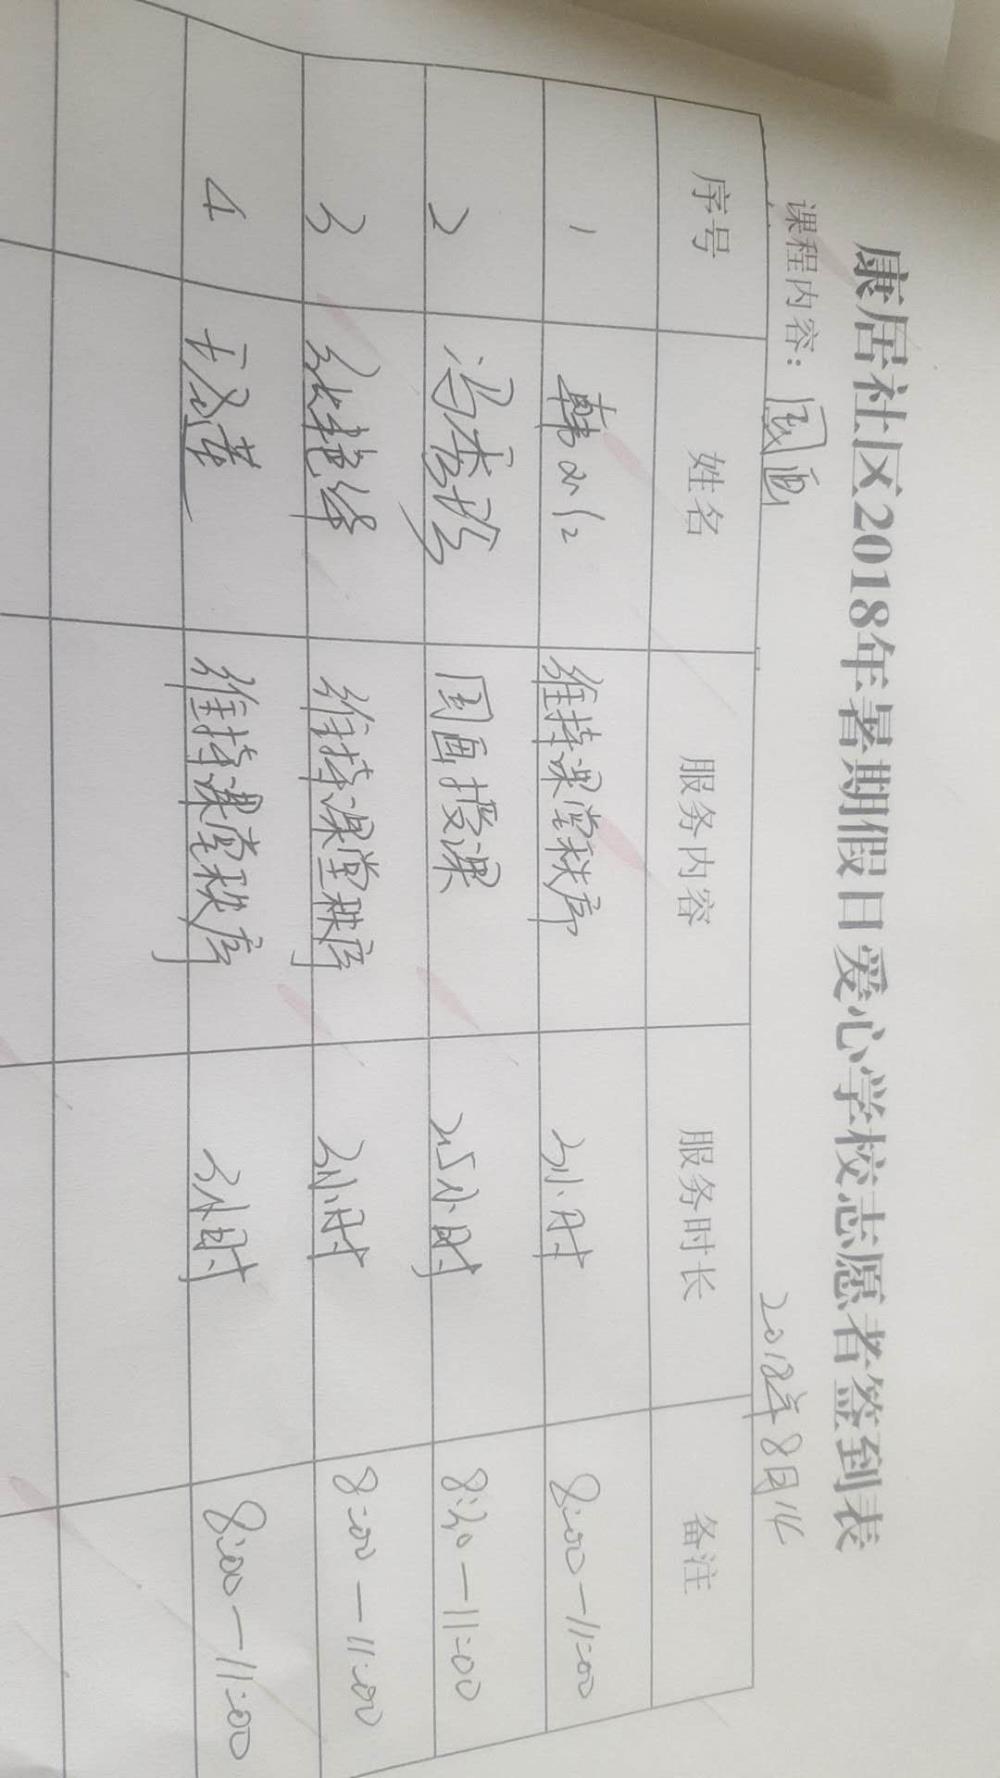 康居社区2018年暑期假日爱心学校志愿者签到表
课程内容：国画 2018年8月14
序号 姓名 服务内容 服务时长 备注
1 韩 维持课堂秩序 3小时 8:00—11:00
2 冯秀珍 国画授课 2.5小时 8:30—11:00
3 张艳 维持课堂秩序 3小时 8:00—11:00
4 王 莲 维持课堂秩序 3小时 8:00—11:00